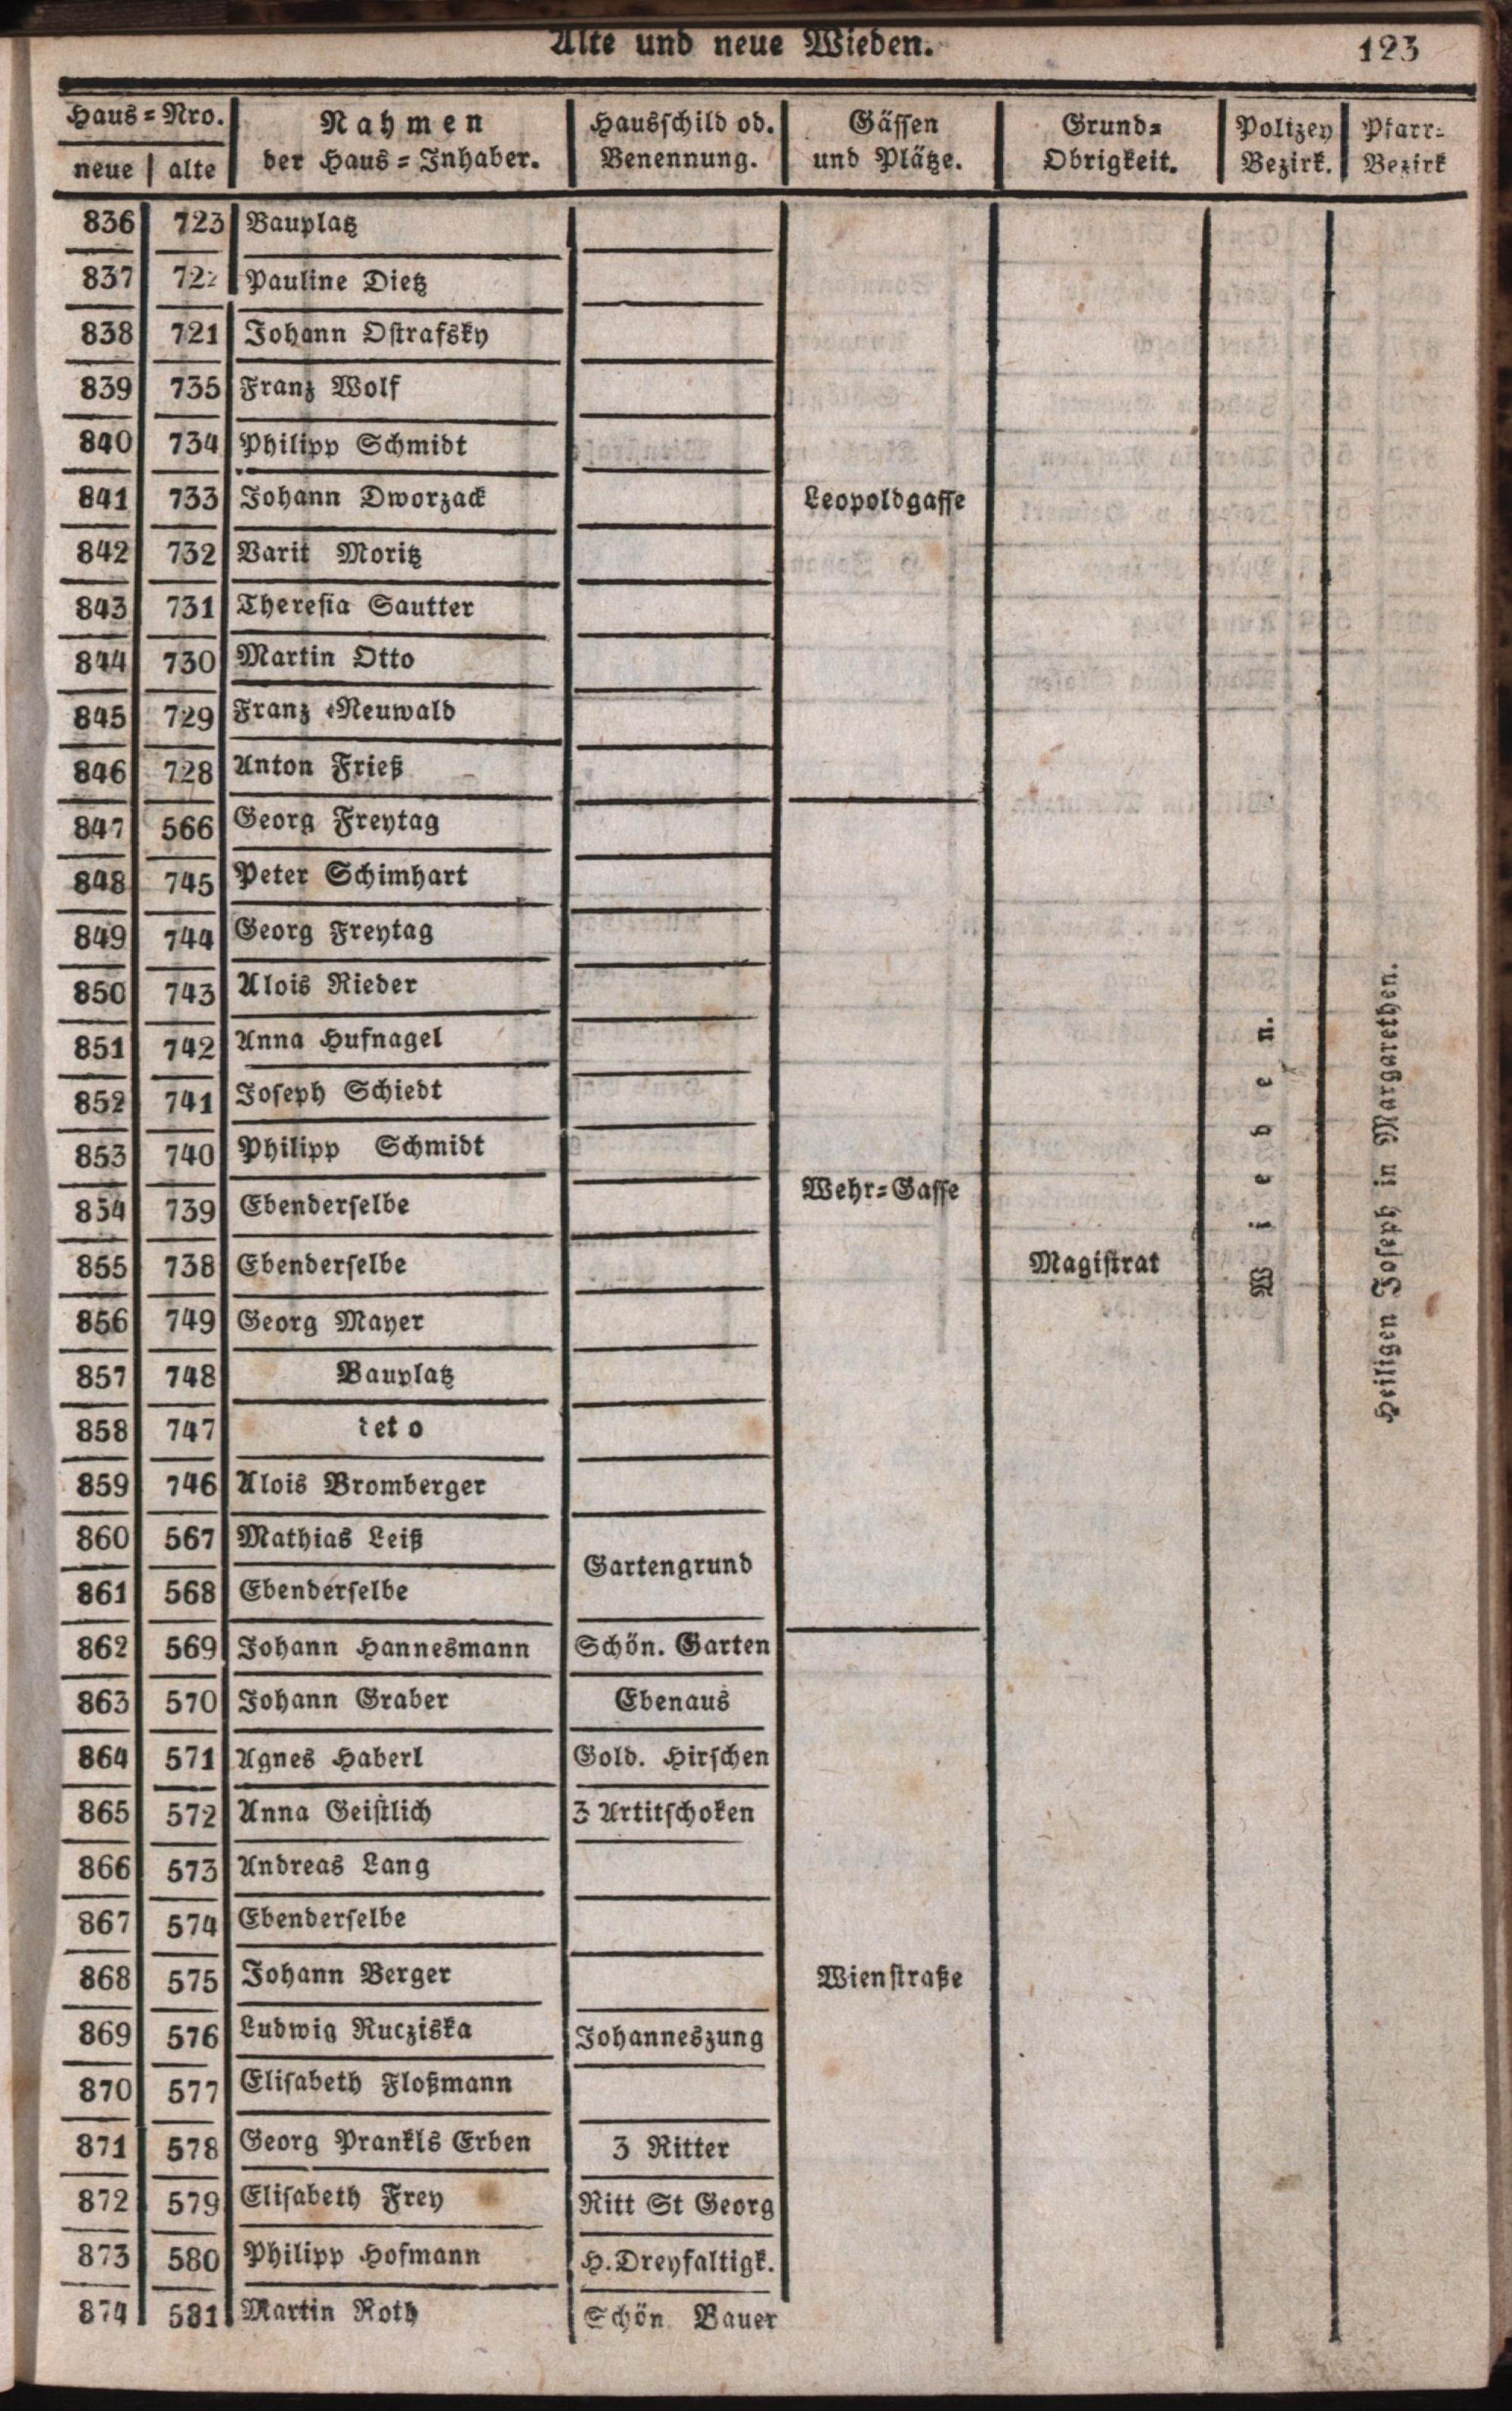 Alte und neue Wieden. 123
Haus=Nro. Nahmen Hausschild od. Gässen Grund= Polizey Pfarr=
neue alte der Haus=Inhaber. Benennung. und Plätze. Obrigkeit. Bezirk. Bezirk
836 723 Bauplatz
837 722 Pauline Dietz
838 721 Johann Ostrafsky
839 735 Franz Wolf
840 734 Philipp Schmidt
841 733 Johann Dworzack Leopoldgasse
842 732 Barit Moritz
843 731 Theresia Sautter
844 730 Martin Otto
845 729 Franz Neuwald
846 728 Anton Frieß
847 566 Georg Freytag
848 745 Peter Schimhart
849 744 Georg Freytag
850 743 Alois Rieder
851 742 Anna Hufnagel
852 741 Joseph Schiedt
853 740 Philipp Schmidt
854 739 Ebenderselbe Wehr=Gasse
855 738 Ebenderselbe Magistrat Wieden. Heiligen Joseph in Margarethen.
856 749 Georg Mayer
857 748 Bauplatz
858 747 teto
859 746 Alois Bromberger
860 567 Mathias Leiß
Gartengrund
861 568 Ebenderselbe
862 569 Johann Hannesmann Schön. Garten
863 570 Johann Graber Ebenaus
864 571 Agnes Haberl Gold. Hirschen
865 572 Anna Geistlich 3 Artitschoken
866 573 Andreas Lang
867 574 Ebenderselbe
868 575 Johann Berger Wienstraße
869 576 Ludwig Rucziska Johanneszung
870 577 Elisabeth Floßmann
871 578 Georg Prankls Erben 3 Ritter
872 579 Elisabeth Frey Ritt St Georg
873 580 Philipp Hofmann H. Dreyfaltigk.
874 581 Martin Roth Schön Bauer